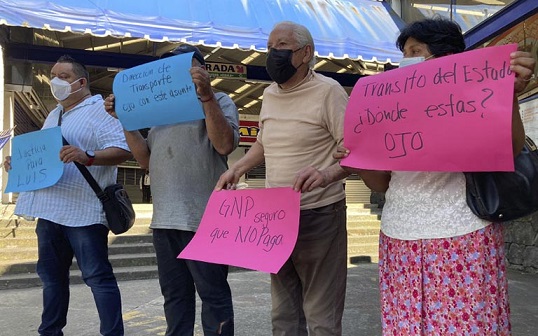 Justicia
para
LUIS
Dirección de
Transporte
ojo con este asunto
GNP seguro
que NO Paga.
Transito del Estado
¿Dónde estas?
OJO
RADA